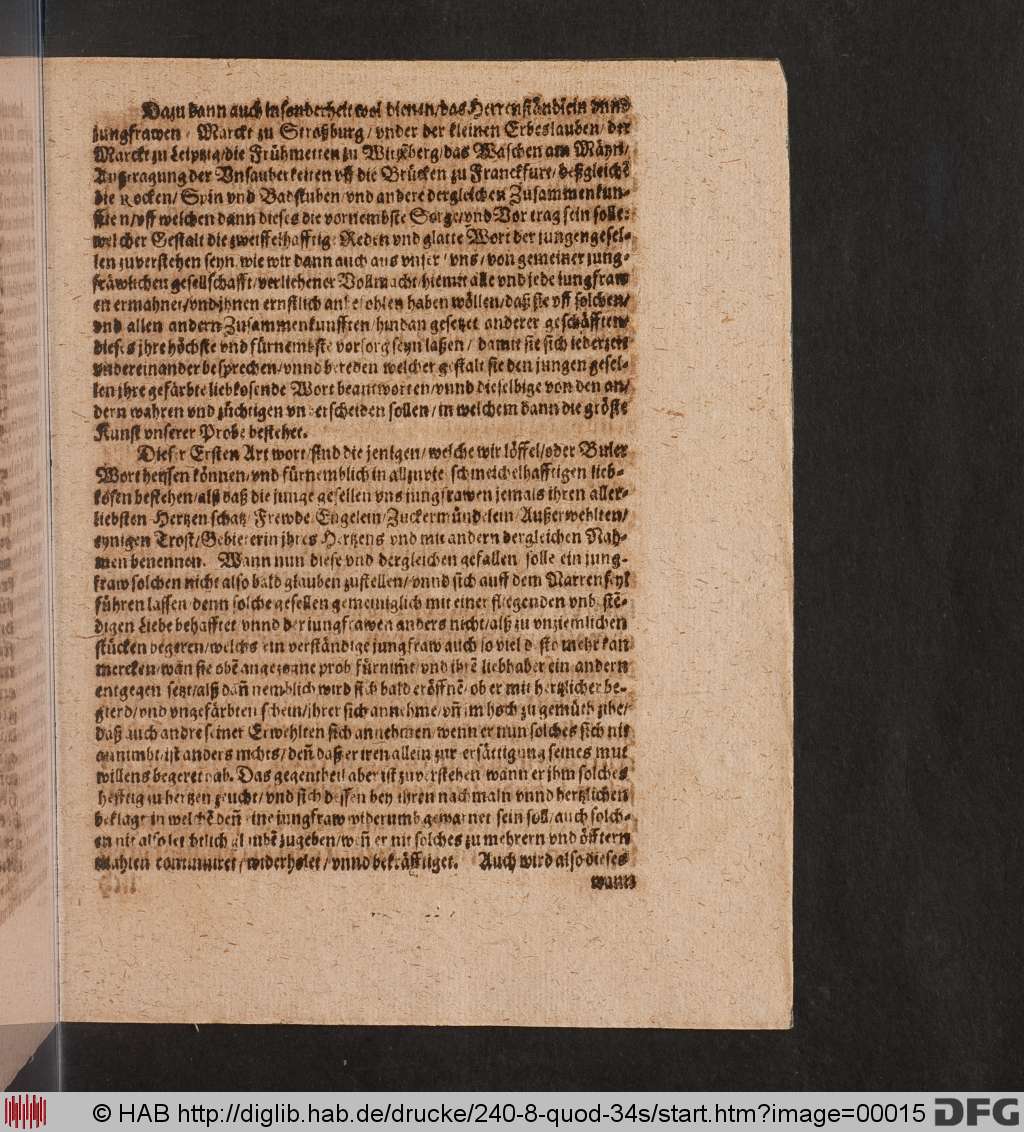 Dazu dann auch insonderheit wol dienen/das Herrenständlein vnnd
jungfrawen Marckt zu Straßburg/vnder der kleinen Erbeslauben/der
Marckt zu Leipzig/die Frühmetten zu Wittēberg/das Waschen am Mäyn/
Außtragung der Vnsauberkeiten vff die Brücken zu Franckfurt/deßgleichē
die Rocken/Spin vnd Badstuben/vnd andere dergleichen Zusammenkun-
fften/vff welchen dann dieses die vornembste Sorge/vnd Vortrag sein solle:
welcher Gestalt die zweiffelhafftige Reden vnd glatte Wort der jungen gesel-
len zuverstehen seyn. wie wir dann auch aus vnser/vns/von gemeiner jung-
fräwlichen gesellschafft/verliehener Vollmacht/hiemit alle vnd jede jungfraw
en ermahnet/vnd jhnen ernstlich anbefohlen haben wöllen/daß sie vff solchen/
vnd allen andern Zusammenkunfften/hindan gesetzet anderer geschäfften/
dieses jhre höchste vnd fürnembste vorsorg seyn laßen/damit sie sich iederzeit
vndereinander besprechen/vnnd bereden welcher gestalt sie den jungen gesel-
len ihre gefärbte liebkosende Wort beantworten/vnnd dieselbige von den an/
dern wahren vnd züchtigen vnterscheiden sollen/in welchem dann die gröste
Kunst vnserer Probe bestehet.
Dieser Ersten Art wort/sind die jenigen/welche wir löffel/oder Buler
Wort heyssen können/vnd fürnemblich in allzuvie schmeichelhafftigen lieb-
kosen bestehen/alß daß die junge gesellen vns jungfrawen jemals ihren aller-
liebsten Hertzen schatz/Frewde/Engelein/Zuckermündelein/Außerwehlten/
eynigen Trost/Gebieterin jhres Hertzens vnd mit andern dergleichen Nah-
men benennen. Wann nun diese vnd dergleichen gefallen solle ein jung-
fraw solchen nicht also bald glauben zustellen/vnnd sich auff dem Narrenseyl
führen lassen/denn solche gesellen gemeiniglich mit einer fliegenden vnbestē-
digen Liebe behafftet vnnd der jungfrawen anders nicht/alß zu vnziemlichen
stücken begeren/welchs ein verständige jungfraw auch so viel desto mehr kan
mercken/wan sie obē angezogne prob fürnimt/vnd ihrē liebhaber ein andern
entgegen setzt/alß dañ nemblich wird sich bald eröffnē/ob er mit hertzlicher be-
gierd/vnd vngefärbten schein/ihrer sich annehme/vñ im hoch zu gemüth zihe/
daß auch andre seiner Erwehlten sich annehmen/wenn er nun solches sich nit
annimbt/ist anders nichts/deñ daß er iren allein zur ersättigung seines mut
willens begeret hab. Das gegentheil aber ist zuverstehen wann er jhm solches
hefftig zu hertzen zeucht/vnd sich dessen bey ihren nachmaln vnnd hertzlichen
beklagt in welchē deñ eine jungfraw widerumb gewarnet sein soll/auch solch-
en nit also leichtlich glaubē zugeben/weñ er nit solches zu mehrern vnd öfftern
mahlen continuiret/widerholet/vnnd bekräfftiget. Auch wird also dieses
wann
© HAB http://diglib.hab.de/drucke/240-8-quod-34s/start.htm?image=00015 DFG